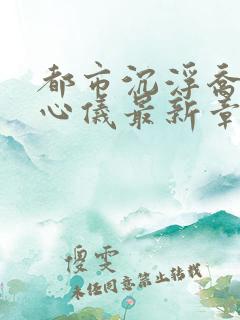 都市沉浮乔
心仪最新章
傻雯
未经同意禁止转载